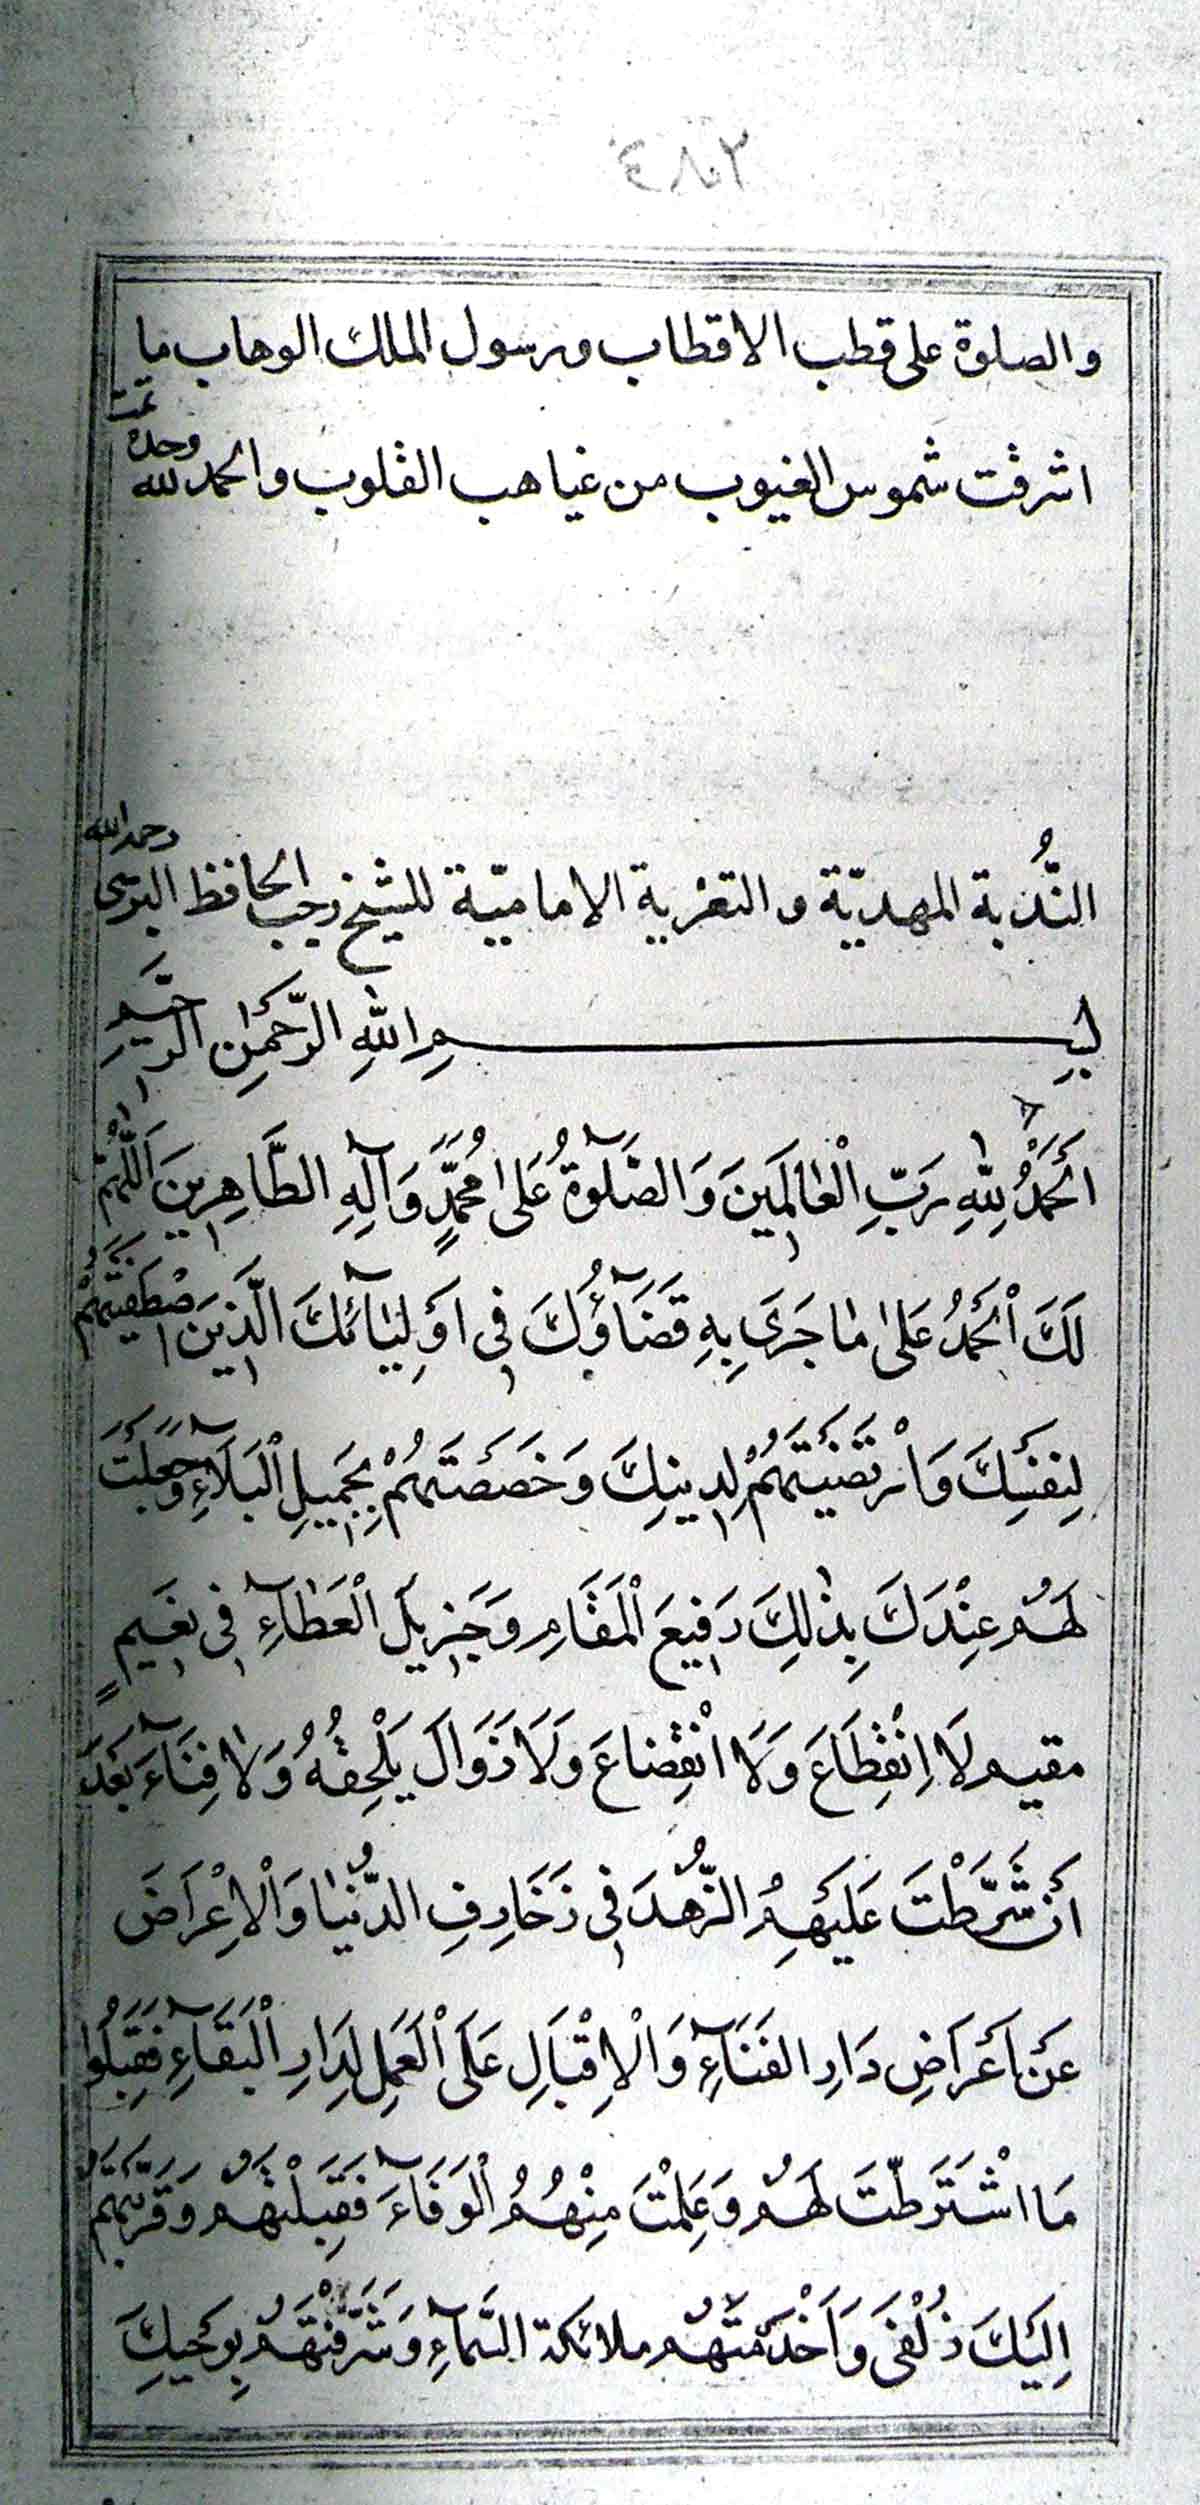 والصلوة على قطب الاقطاب ورسول الملك الوهاب ما
اشرقت شموس الغيوب من غياهب القلوب والحمد لله وحده تمت
النُّدبة المهديّة والتعزية الاماميّة للشيخ رجب الحافظ البرسى رحمه الله
بِسْمِ اللهِ الرَّحْمٰنِ الرَّحِيمِ
اَلْحَمْدُ لِلّٰهِ رَبِّ الْعٰالَمِينَ وَالصَّلٰوةُ عَلىٰ مُحَمَّدٍ وَآلِهِ الطَّاهِرِينَ اَللّٰهُمَّ
لَكَ الْحَمْدُ عَلىٰ مٰا جَرَى بِهِ قَضَآؤُكَ فِى اَوْلِيٰائِكَ الَّذِينَ اصْطَفَيْتَهُمْ
لِنَفْسِكَ وَارْتَضَيْتَهُمْ لِدِينِكَ وَخَصَصْتَهُمْ بِجَمِيلِ الْبَلَآءِ وَجَعَلْتَ
لَهُمْ عِنْدَكَ بِذٰلِكَ رَفِيعَ الْمَقَامِ وَجَزِيلَ الْعَطَآءِ فِى نَعِيمٍ
مقيم لَا اِنْقِطَاعَ وَلَا انْقِضَاعَ وَلَا زَوَالَ يَلْحِقُهُ وَلَا فِنَآءَ بَعْدَ
أَنْ شَرَّطْتَ عَلَيْهِمُ الزُّهْدَ فِى زَخَارِفِ الدُّنْيٰا وَالْاِعْرَاضَ
عَنْ اَعْرَاضِ دَارِ الفَنَآءِ وَالْاِقْبَالِ عَلَى الْعَمَلِ لِدَارِ الْبَقَآءِ فَقَبِلُوا
مَا اشْتَرَطْتَ لَهُمْ وَعَلِمْتَ مِنْهُمُ الْوَفَآءَ فَقَبِلْتَهُمْ وَقَرَّبْتَهُمْ
اِلَيْكَ زُلْفَى وَاَخْدَمْتَهُمْ ملائكة السَّمآءِ وَشَرَّفْتَهُمْ بِوَحْيِكَ